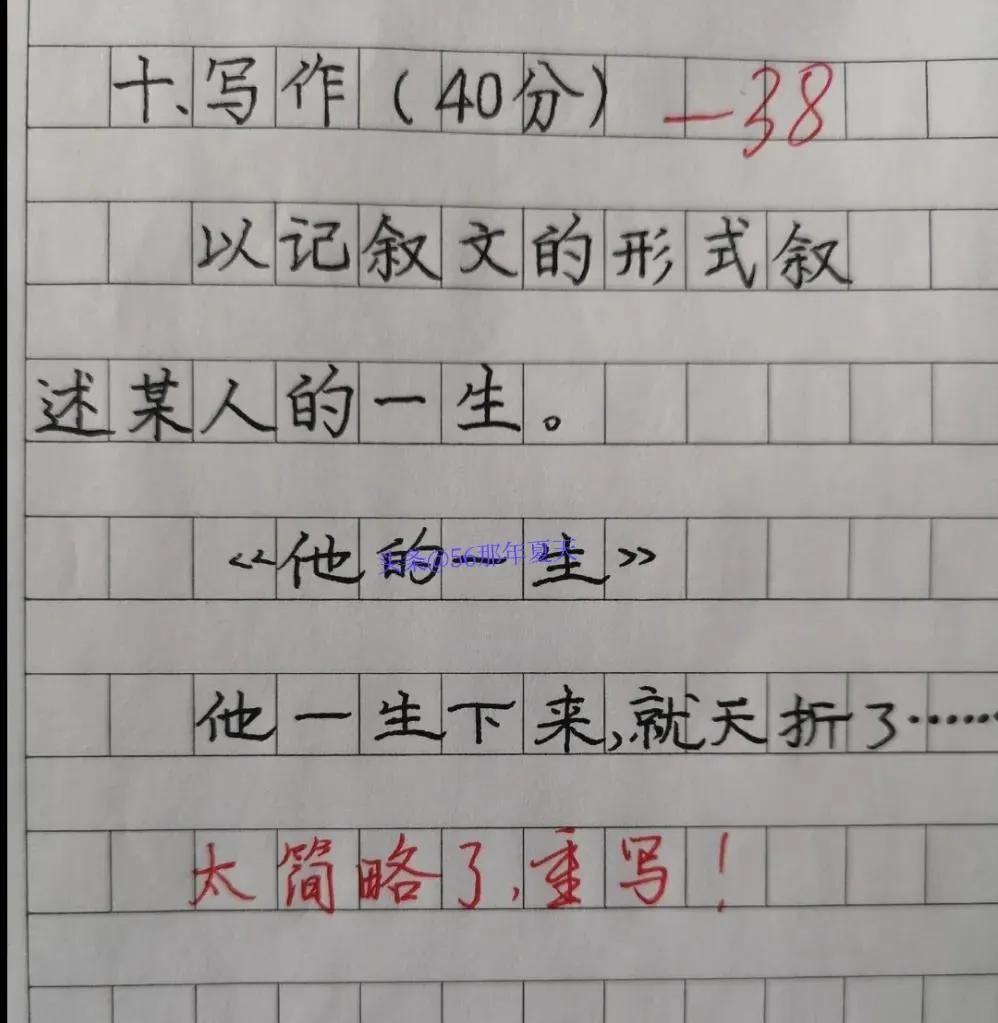 十、写作(40分) -38
以记叙文的形式叙
述某人的一生。
《他的一生》
头条@56那年夏天
他一生下来,就天折了……
太简略了,重写!